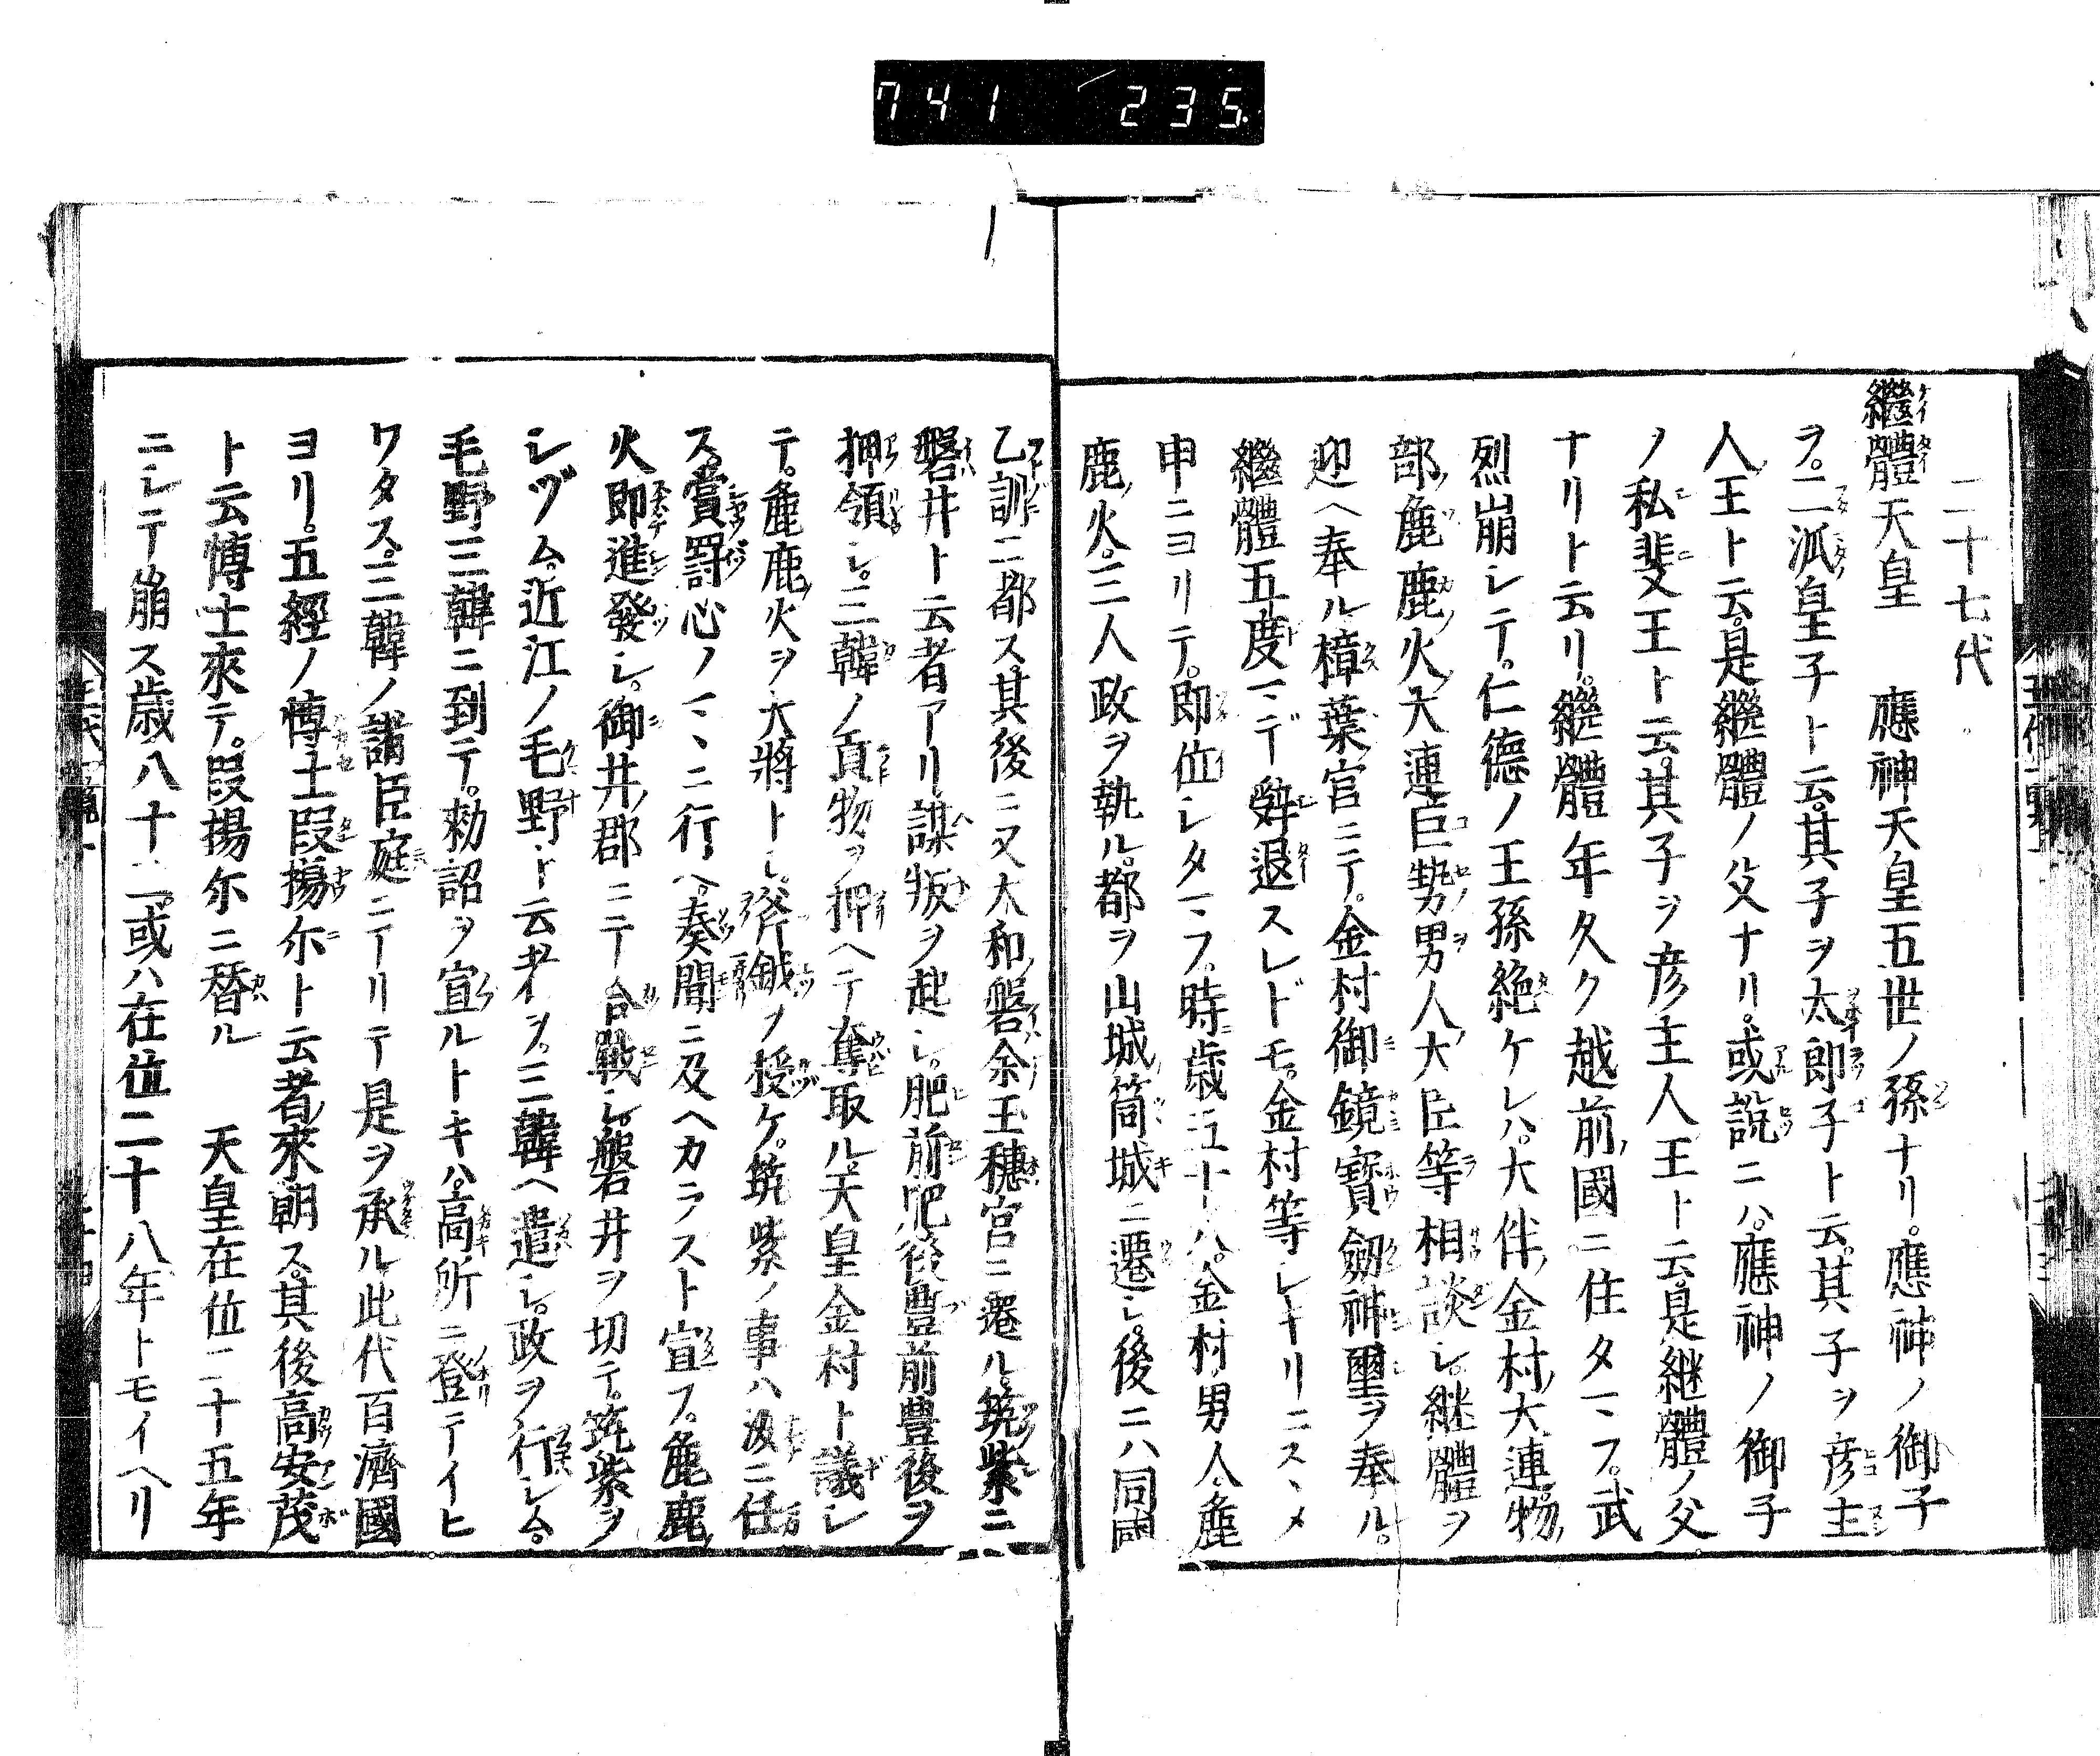 741 235
二十七代
繼體天皇 應神天皇五世ノ孫ナリ。應神ノ御子
ヲ。二派皇子ト云。其子ヲ太郎子ト云。其子ヲ彦主
人王ト云。是繼體ノ父ナリ。或說ニハ。應神ノ御子
ノ私斐王ト云。其子ヲ彦主人王ト云。是継體ノ父
ナリト云リ。繼體年久ク越前國ニ住タマフ。武
烈崩シテ。仁德ノ王孫絶ケレハ。大伴金村大連物
部麁鹿火大連巨勢男人大臣等相談シ。継體ヲ
迎ヘ奉ル樟葉宮ニテ。金村御鏡寶劔神璽ヲ奉ル。
繼體五度マデ辭退スレドモ。金村等シキリニスヽメ
申ニヨリテ。即位シタマフ。時歳五十八。金村男人麁
鹿火三人政ヲ執ル。都ヲ山城筒城ニ遷シ。後ニハ同國
乙訓ニ都ス。其後ニ又大和磐余玉穗宮ニ遷ル。筑紫ニ
磐井ト云者アリ。謀叛ヲ起シ。肥前肥後豊前豊後ヲ
押領シ。三韓ノ貢物ヲ押ヘテ奪取ル。天皇金村ト議シ
テ。麁鹿火ヲ大將トシ。斧鉞ヲ授ケ。筑紫ノ事ハ汝ニ任
ス。賞罰心ノマヽニ行ヘ。奏聞ニ及ヘカラスト宣フ。麁鹿
火即進發シ。御井郡ニテ合戰シ。磐井ヲ切テ。筑紫ヲ
シヅム。近江ノ毛野ト云者ヲ。三韓ヘ遣シ。政ヲ行シム。
毛野三韓ニ到テ。勅詔ヲ宣ルトキハ。高所ニ登テイヒ
ワタス。三韓ノ諸臣庭ニアリテ是ヲ承ル此代百濟國
ヨリ。五經ノ博士段揚尓ト云者來朝ス。其後高安茂
ト云博士來テ。段揚尓ニ替ル 天皇在位二十五年
ニシテ崩ス歳八十二或ハ在位二十八年トモイヘリ